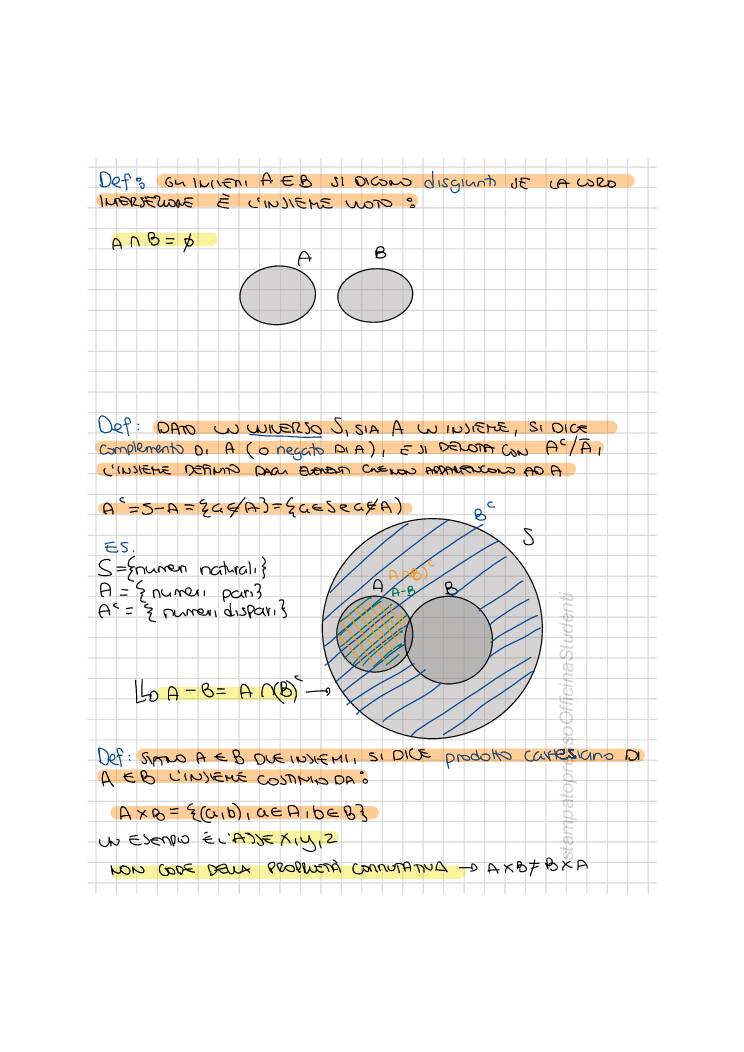 Def: GLI INSIEMI A E B SI DICONO disgiunti SE LA LORO
INTERSEZIONE È L'INSIEME VUOTO :
A ∩ B = ∅
A
B
Def: DATO UN UNIVERSO S, SIA A UN INSIEME, SI DICE
complemento DI A (O negato DI A), E SI DENOTA CON Aᶜ/Ā,
L'INSIEME DEFINITO DAGLI ELEMENTI CHE NON APPARTENGONO AD A
Aᶜ = S-A = {a ∉ A} = {a ∈ S e a ∉ A)
Bᶜ
S
ES.
S = {numeri naturali}
A = { numeri pari}
Aᶜ = { numeri dispari}
A∩(B)ᶜ
A
A-B
B
↳ A - B = A ∩(B)ᶜ →
Def: SIANO A E B DUE INSIEMI, SI DICE prodotto cartesiano DI
A E B L'INSIEME COSTITUITO DA:
A x B = {(a,b), a ∈ A, b ∈ B}
UN ESEMPIO È L'ASSE X,Y,Z
NON GODE DELLA PROPRIETÀ COMMUTATIVA → A x B ≠ B x A
stampatopressoOfficinaStudenti